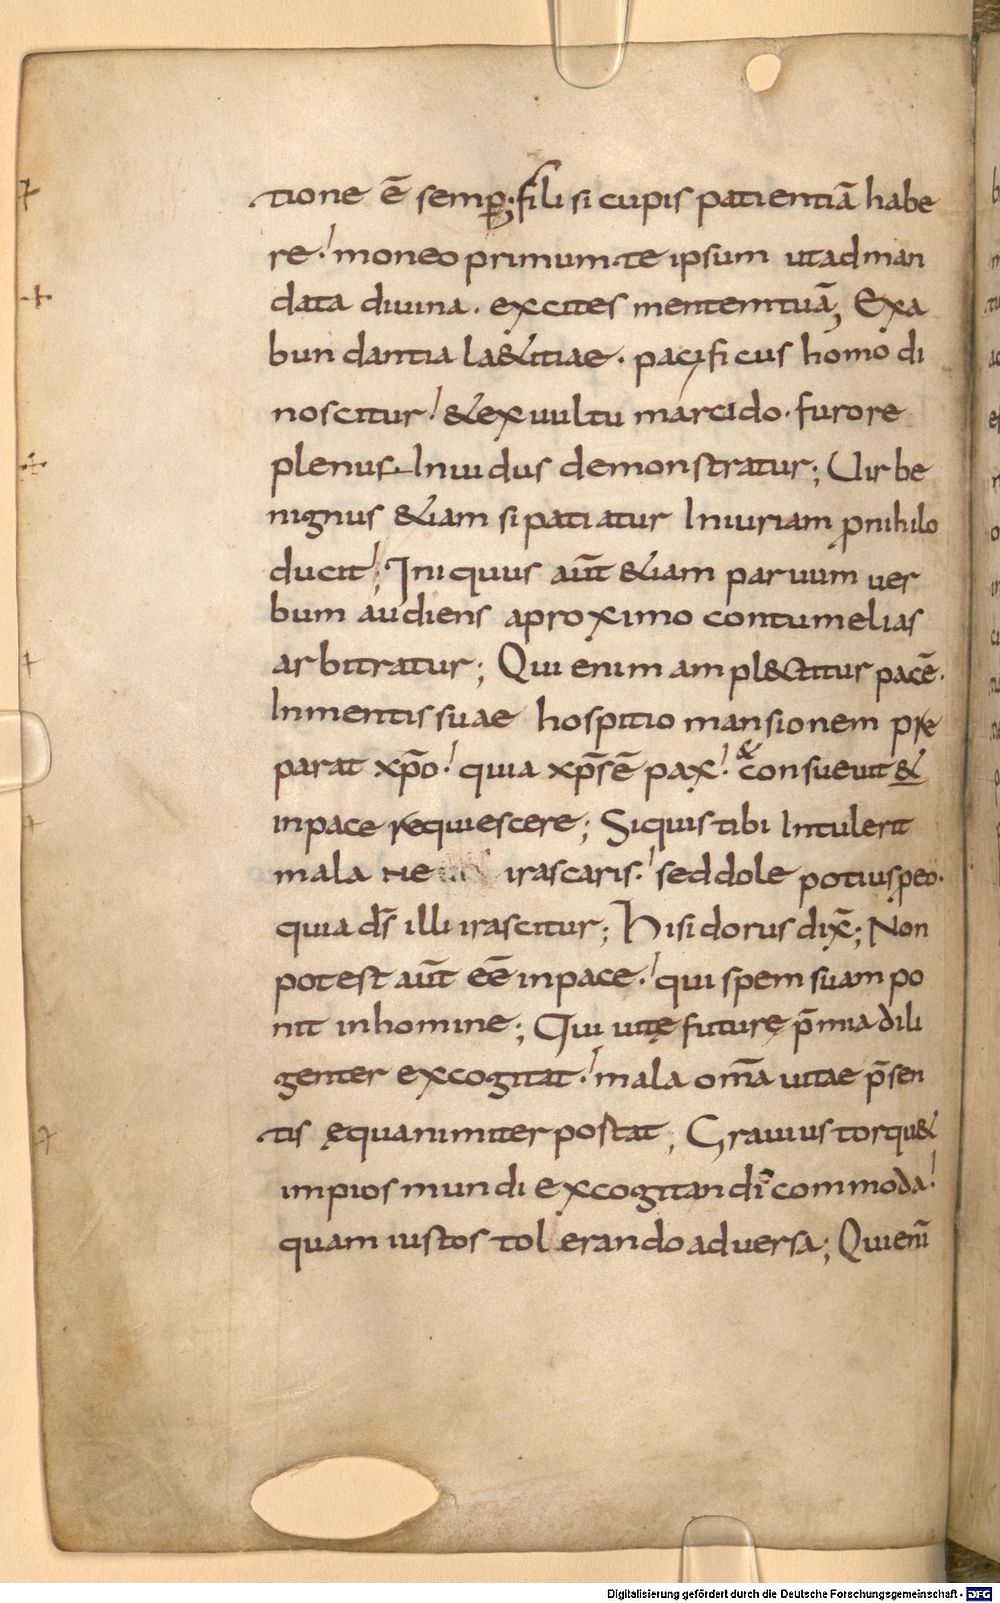 tione ē semp̲; fili si cupis patientiā habe
re! moneo primum te ipsum ut ad man
data divina. excites mentem tuā, Exa
bundantia la&itiae. pacificus homo di
noscitur! & ex uultu marcido. furore
plenus Inuidus demonstratur; Uir be
nignus &iam si patiatur Iniuriam ꝓnihilo
ducit; Iniquus aūt &iam paruum uer
bum audiens aproximo contumelias
arbitratur; Qui enim ampl&ctitur pacē.
In mentis suae hospitio mansionem pre
parat xp̄o! quia xp̄s ē pax! & consueuit &
in pace requiescere; Siquis tibi Intulerit
mala ne irascaris! sed dole potius ꝓeo.
quia ds̄ illi irascitur; Hisidorus dix̄; Non
potest aūt eē in pace! qui spem suam po
nit in homine; Qui uitę futurę p̄mia dili
genter excogitat! mala om̄a uitae p̄sen
tis ęquanimiter postat; Grauius torqu&
impios mundi excogitandi commoda!
quam iustos tolerando aduersa; Qui eni̅
Digitalisierung gefördert durch die Deutsche Forschungsgemeinschaft - DFG